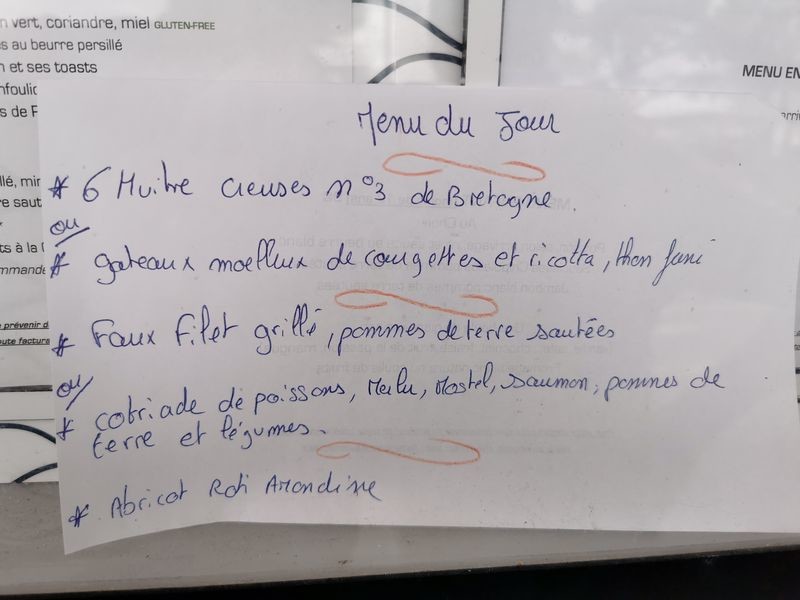 n vert, coriandre, miel GLUTEN-FREE
s au beurre persillé
n et ses toasts
nfoulic
s de F
MENU EN
Menu du Jour
* 6 Huitre creuses n°3 de Bretagne.
ou
* gateaux moellux de courgettes et ricotta, thon fumé
* Faux Filet grillé, pommes de terre sautées
ou
* cotriade de poissons, Merlu, Mostel, saumon, pommes de
terre et légumes.
* Abricot Roti Amandine
llé, mir
re saut
ts à la
mmande
prévenir d
oute factura